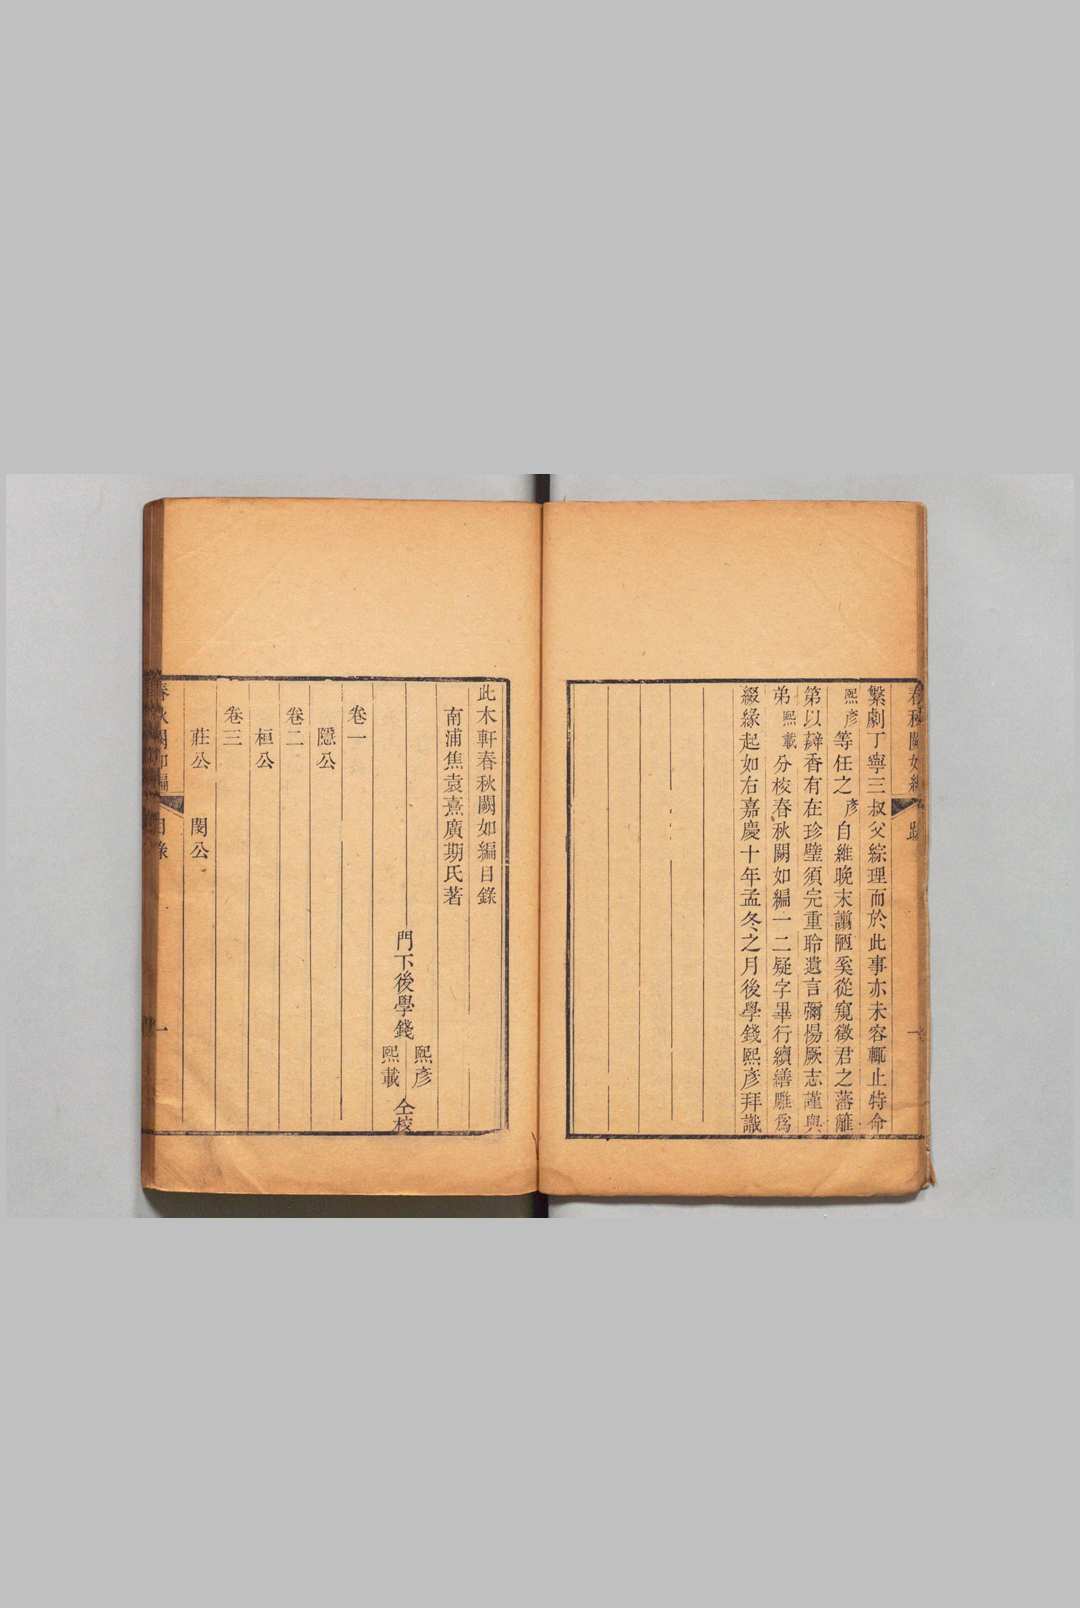 繁劇丁寧三叔父綜理而於此事亦未容輒止特命
熙彥等任之彥自維晚末謭陋奚從窺徵君之藩籬
第以辯香有在珍璧須完重聆遺言彌惕厥志謹與
弟熙載分校春秋闕如編一二疑字畢行續繕雕爲
綴緣起如右嘉慶十年孟冬之月後學錢熙彥拜識
此木軒春秋闕如編目錄
南浦焦袁熹廣期氏著
門下後學錢熙彥熙載仝校
卷一
隱公
卷二
桓公
卷三
莊公 閔公